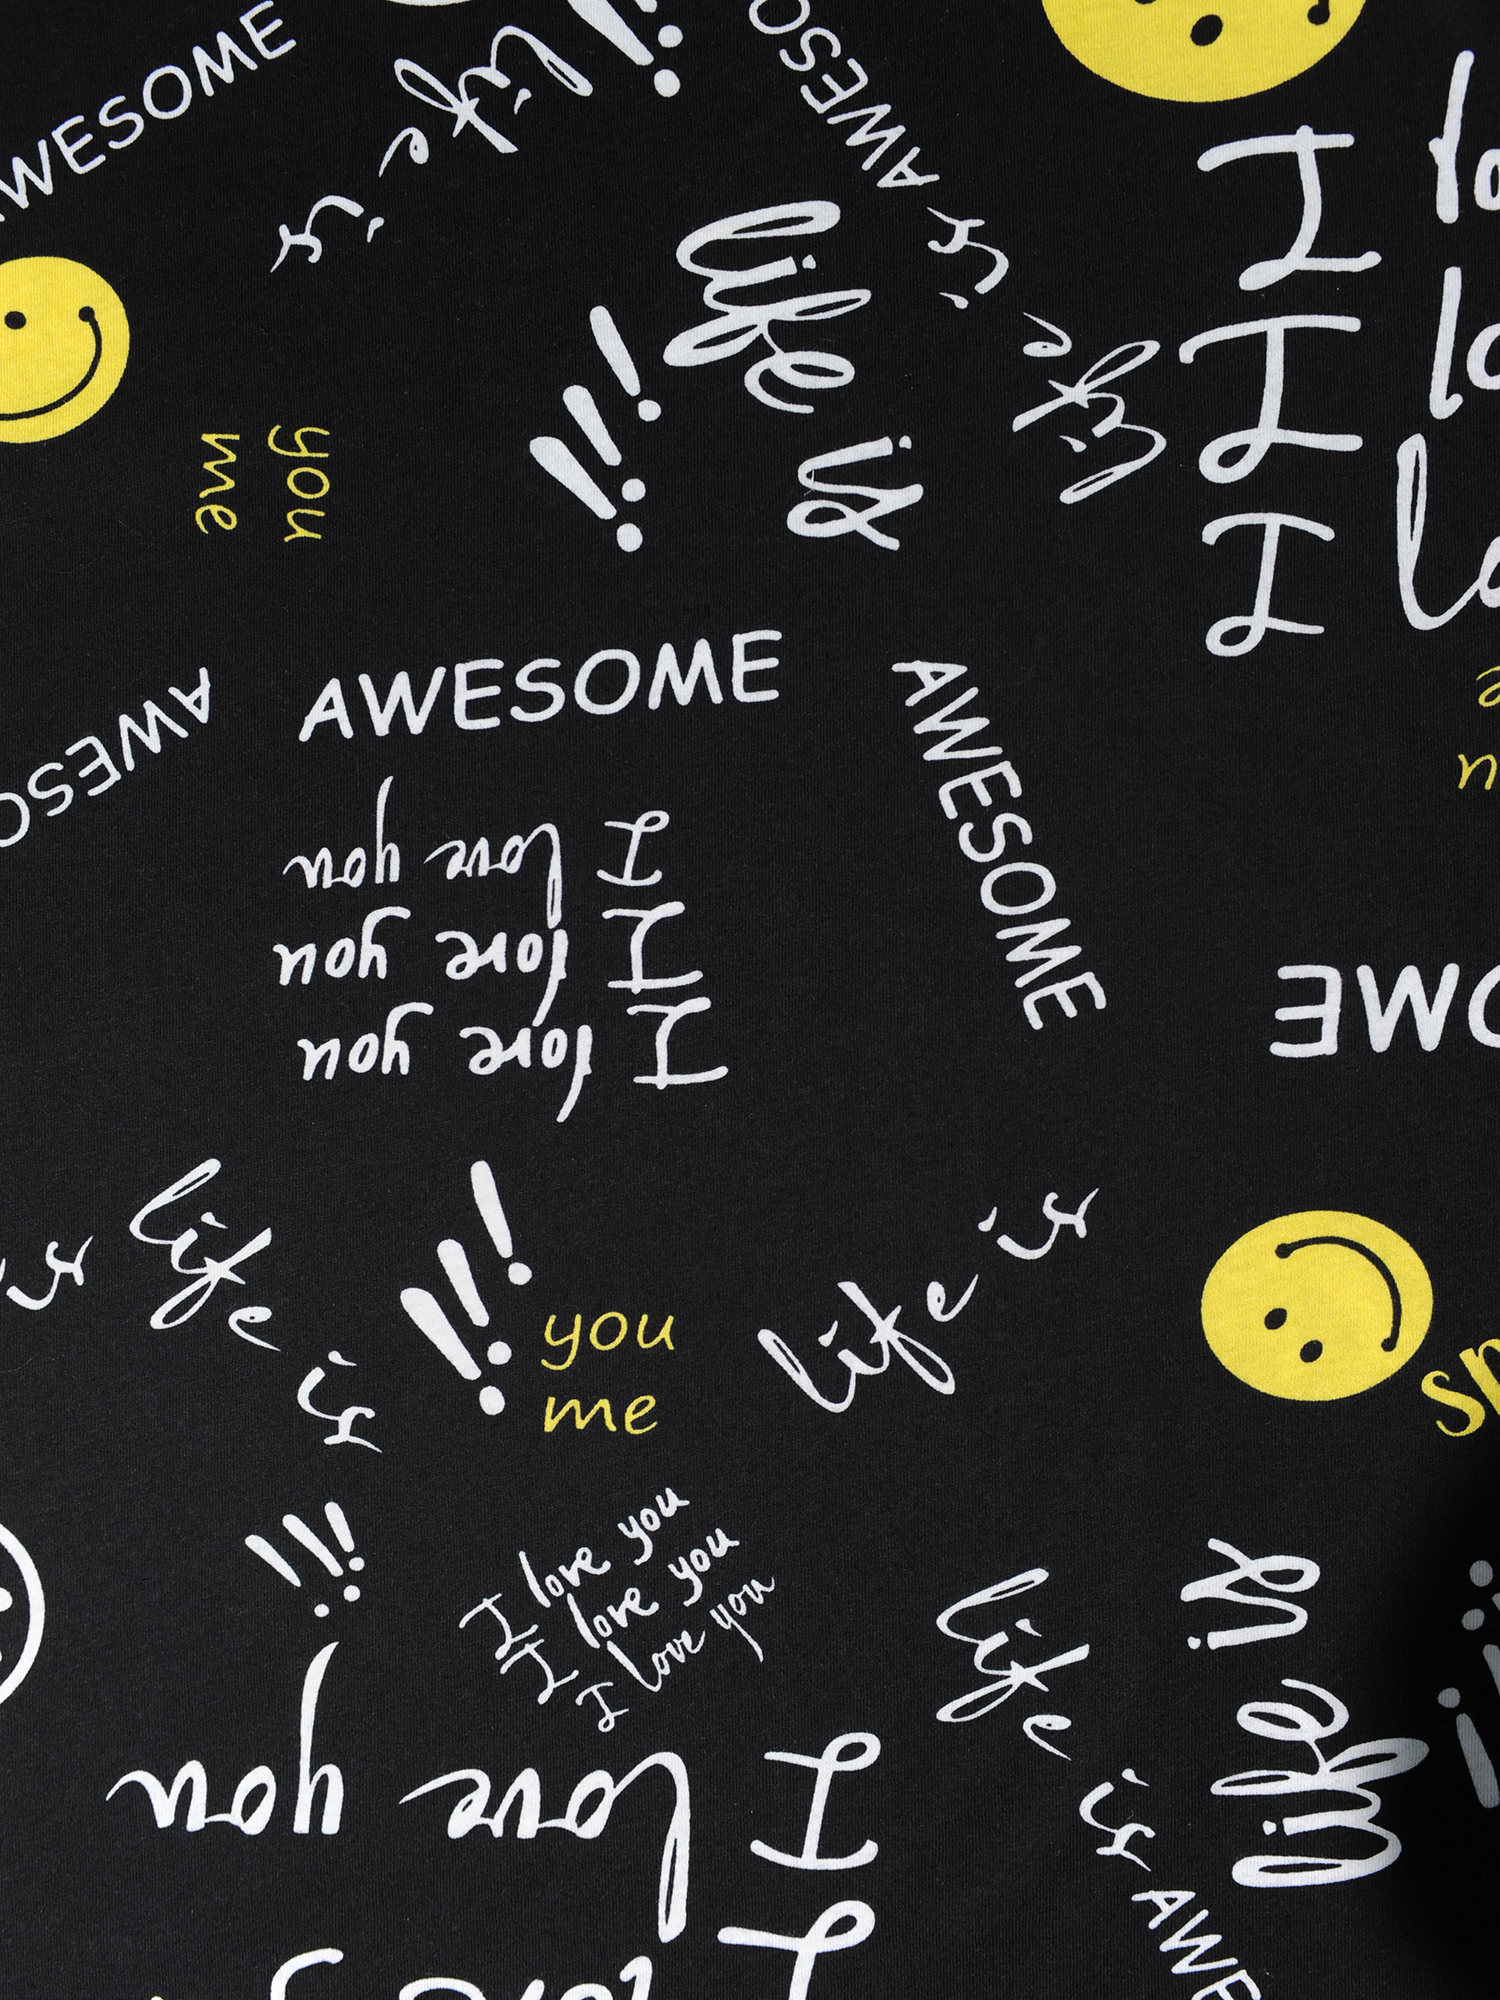 AWESOME
life is
!!!
AWESO
AWESO
life is
life is
!!!
I lo
I lo
I lo
you
me
AWESOME
AWESOME
AWESO
I love you
I love you
I love you
OME
life is
is
!!!
you
me
life is
!!!
I love you
I love you
I love you
life is
life is
I love you
AWE